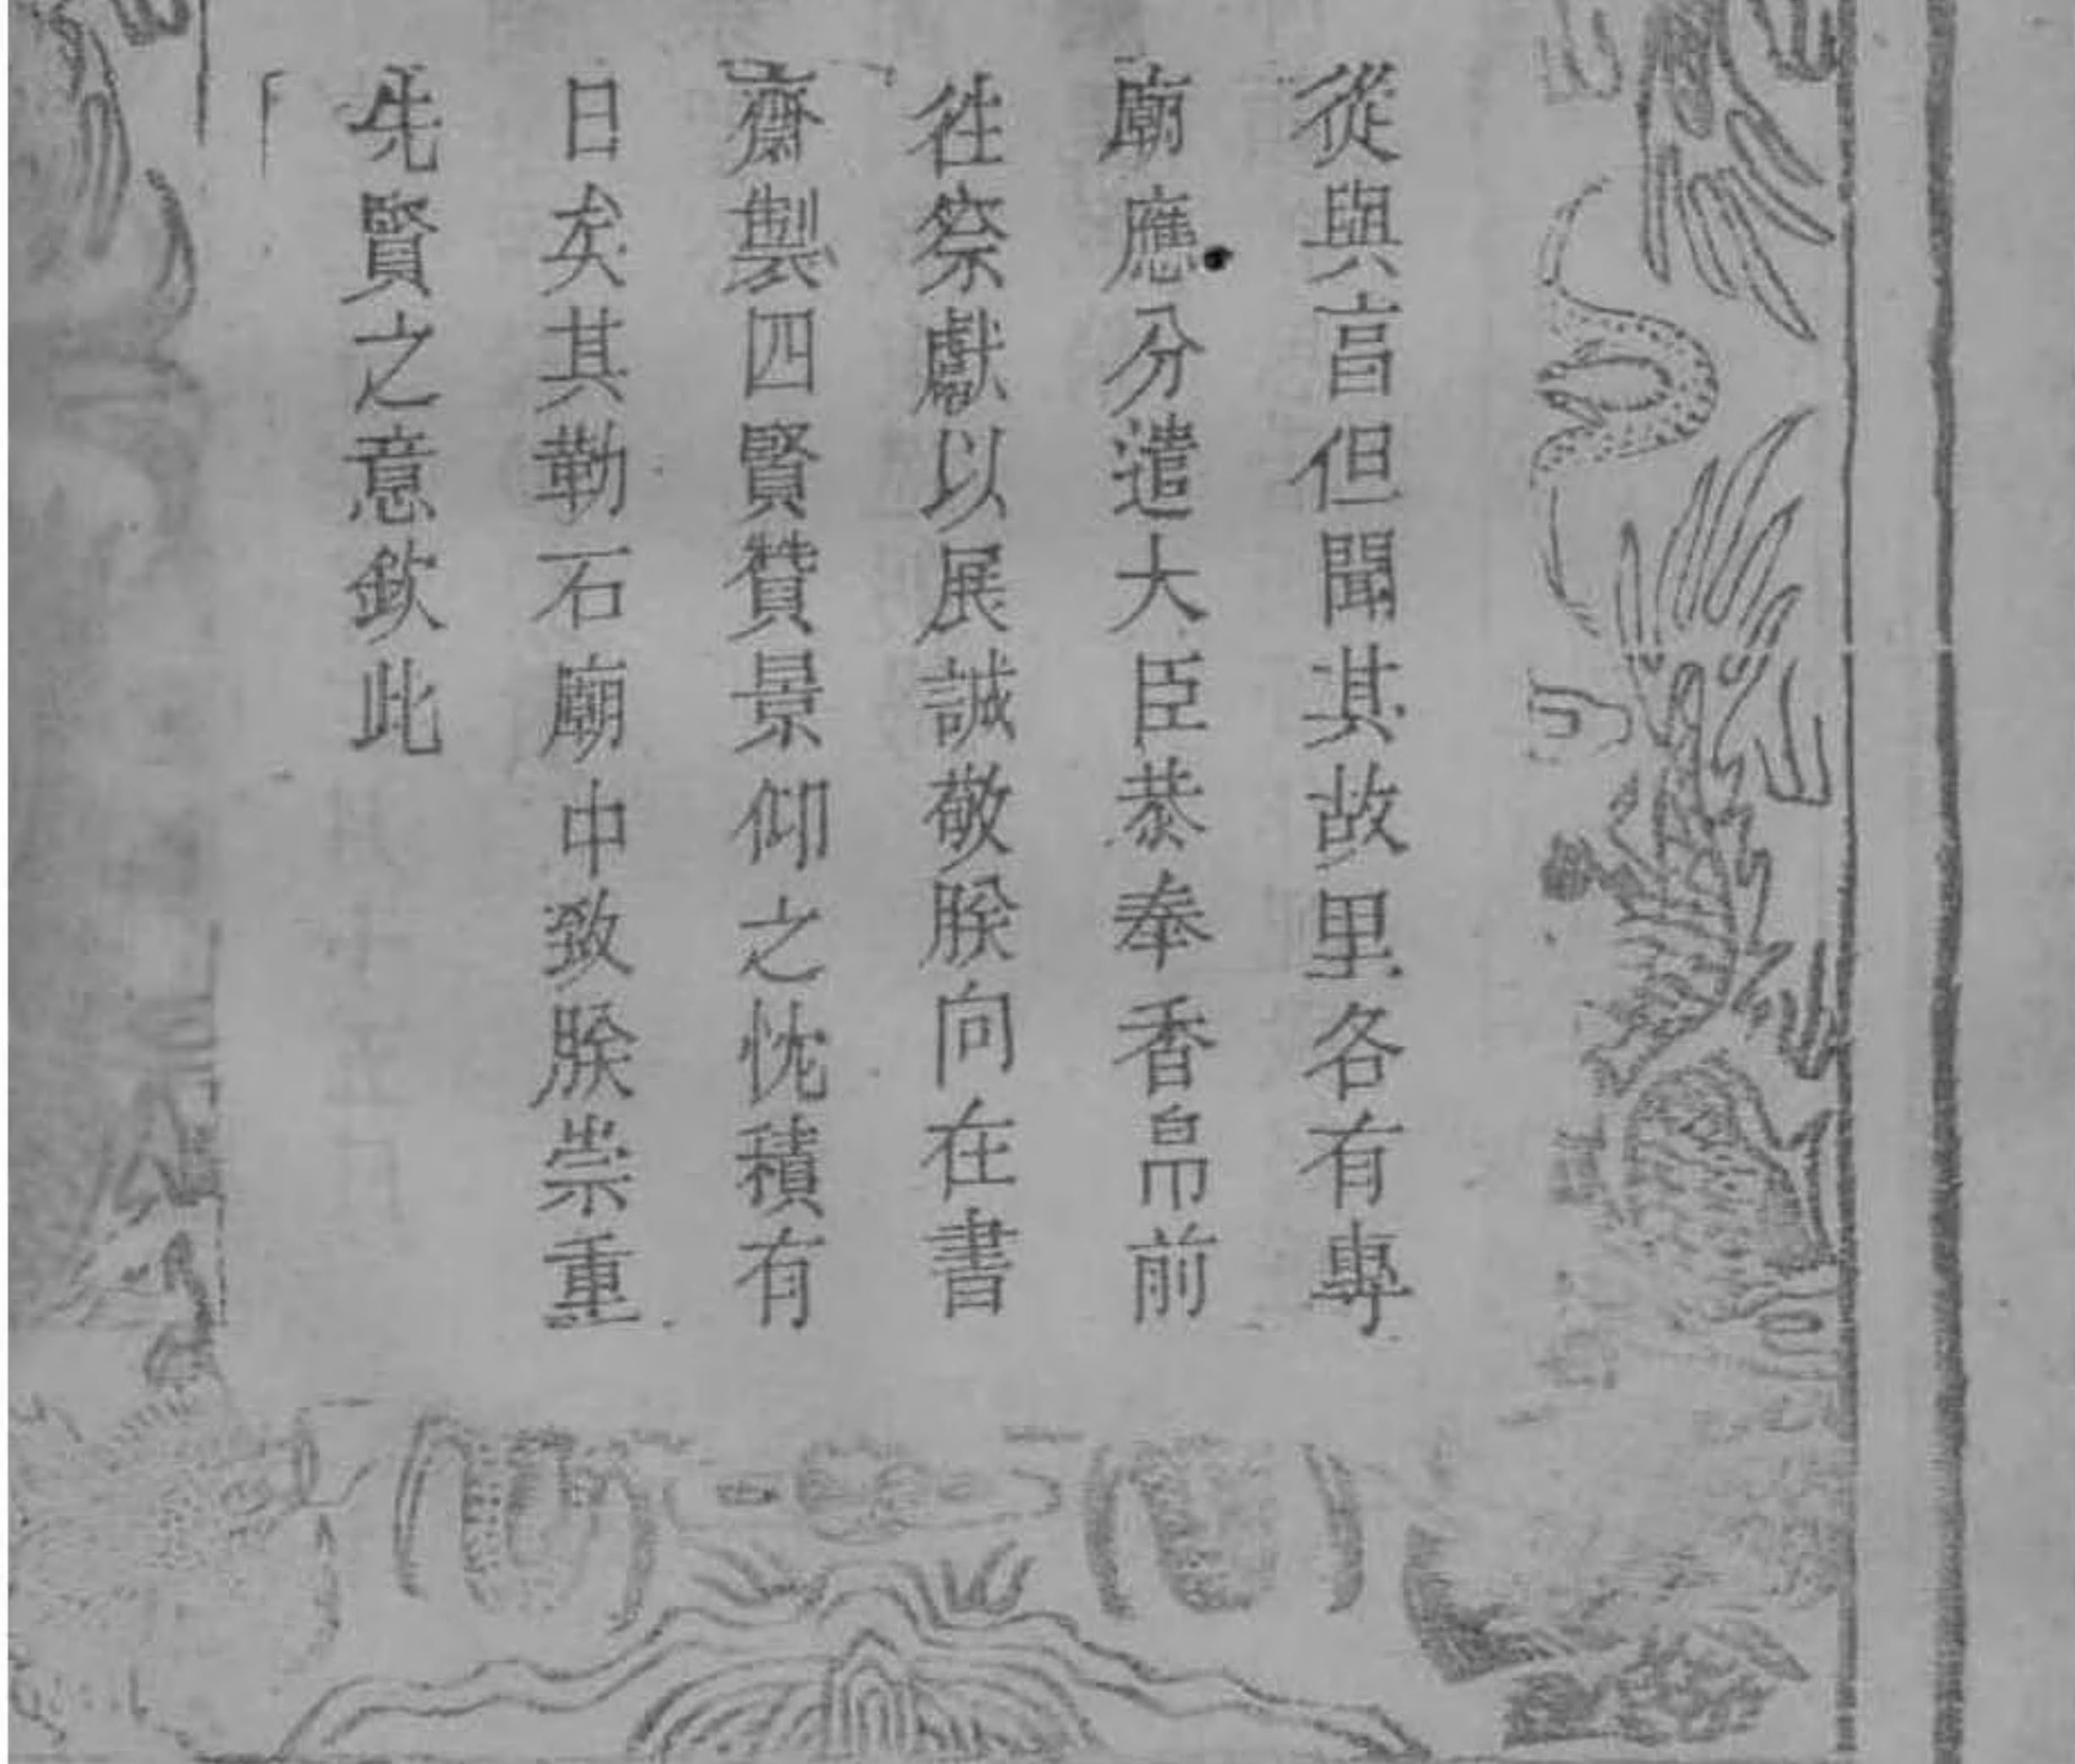 從與亯但聞其故里各有專
廟應分遣大臣恭奉香帛前
徃祭獻以展誠敬朕向在書
齋製四賢贊景仰之忱積有
日矣其勒石廟中致朕崇重
先賢之意欽此